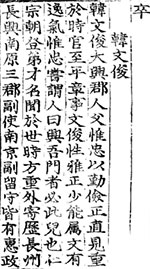 卒
韓文俊
韓文俊大興郡人父惟忠以勤儉正直見重
於時官至平章事文俊性雅正少能属文有
逸氣惟忠嘗謂人曰興吾門者必此兒也仁
宗朝登第才名聞於世時方重外寄歷長州
長興南原三郡副使南京副留守皆有惠政